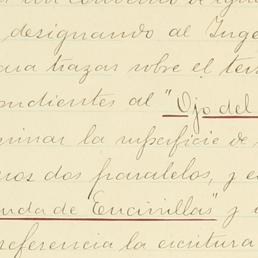 designando al "Inge
para trazar sobre el te
ndientes al "Ojo del
minar la superficie de
ros dos paralelos, y e
nda de Encinillas" y e
referencia la escritura